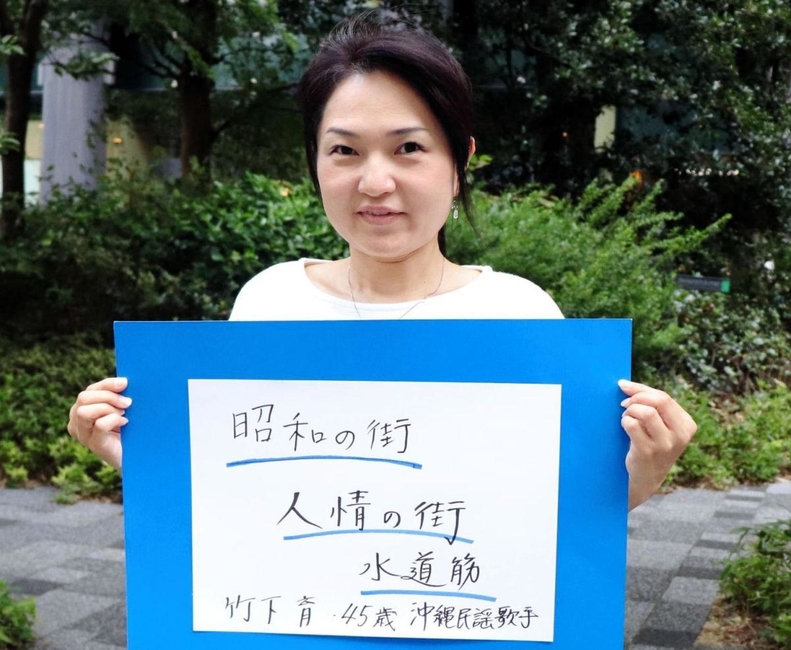 昭和の街
人情の街
水道筋
竹下育・45歳 沖縄民謡歌手